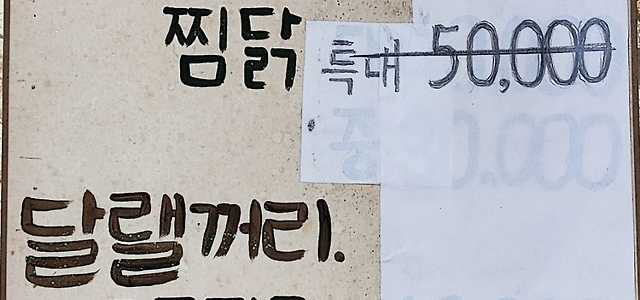 찜닭 특대 50,000
중 0,000
달랠꺼리.